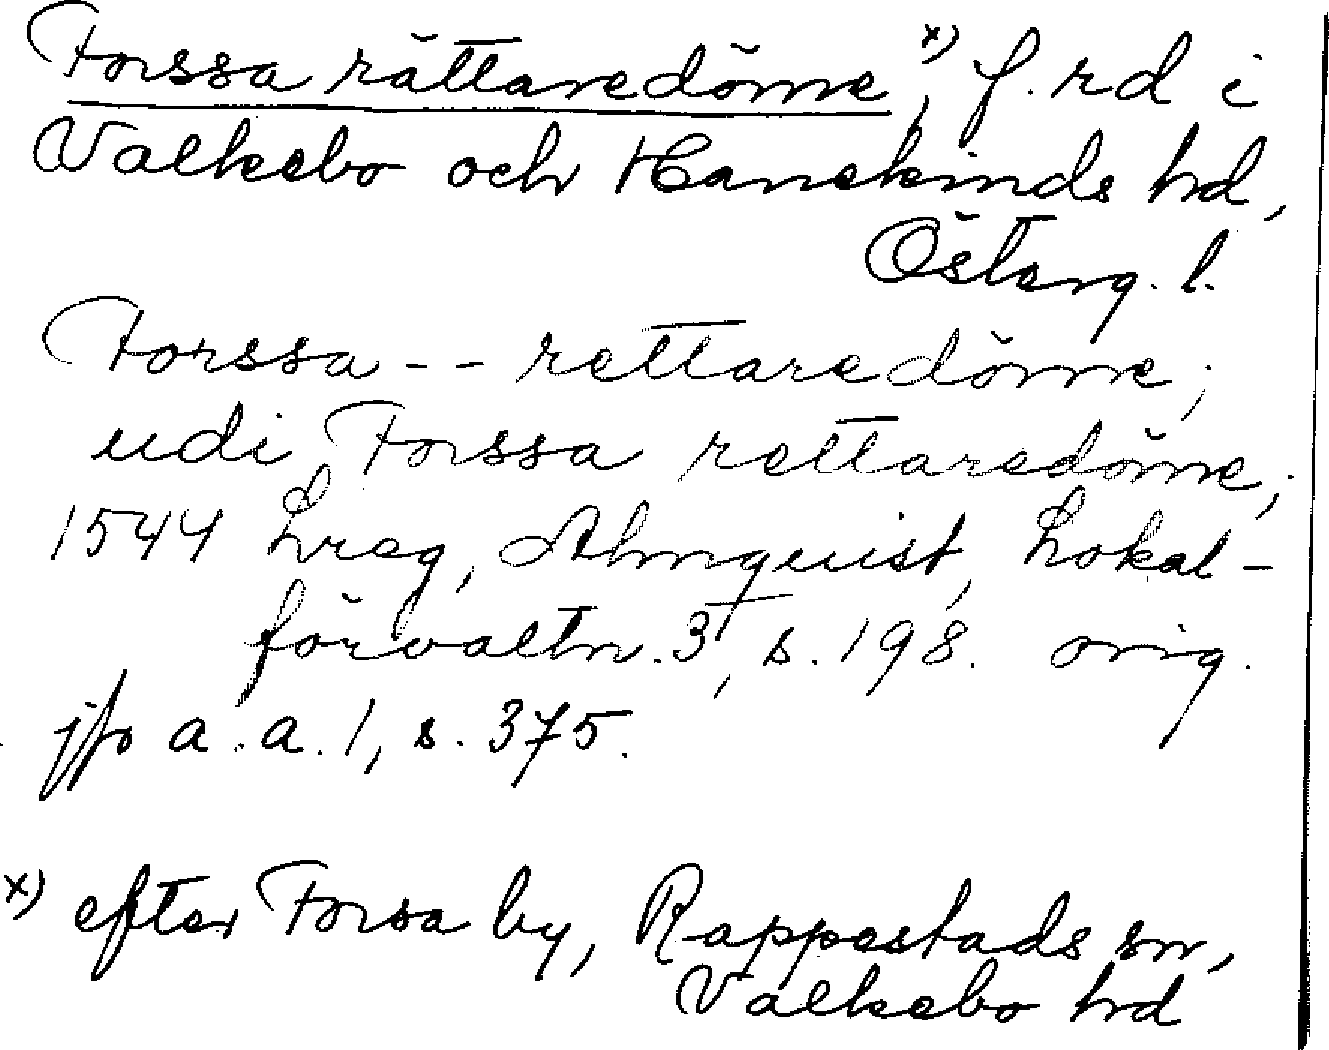 Forssa rättaredöme x), f. rd i
Valkebo och Hanekinds hd,
Österg. l.
Forssa -- rettaredöme;
udi Forssa rettaredöme;
1544 Lreg, Almquist, Lokal-
förvaltn. 3, s. 198. orig.
jfr a. a. 1, s. 375.
x) efter Forsa by, Rappestads sn,
Valkebo hd